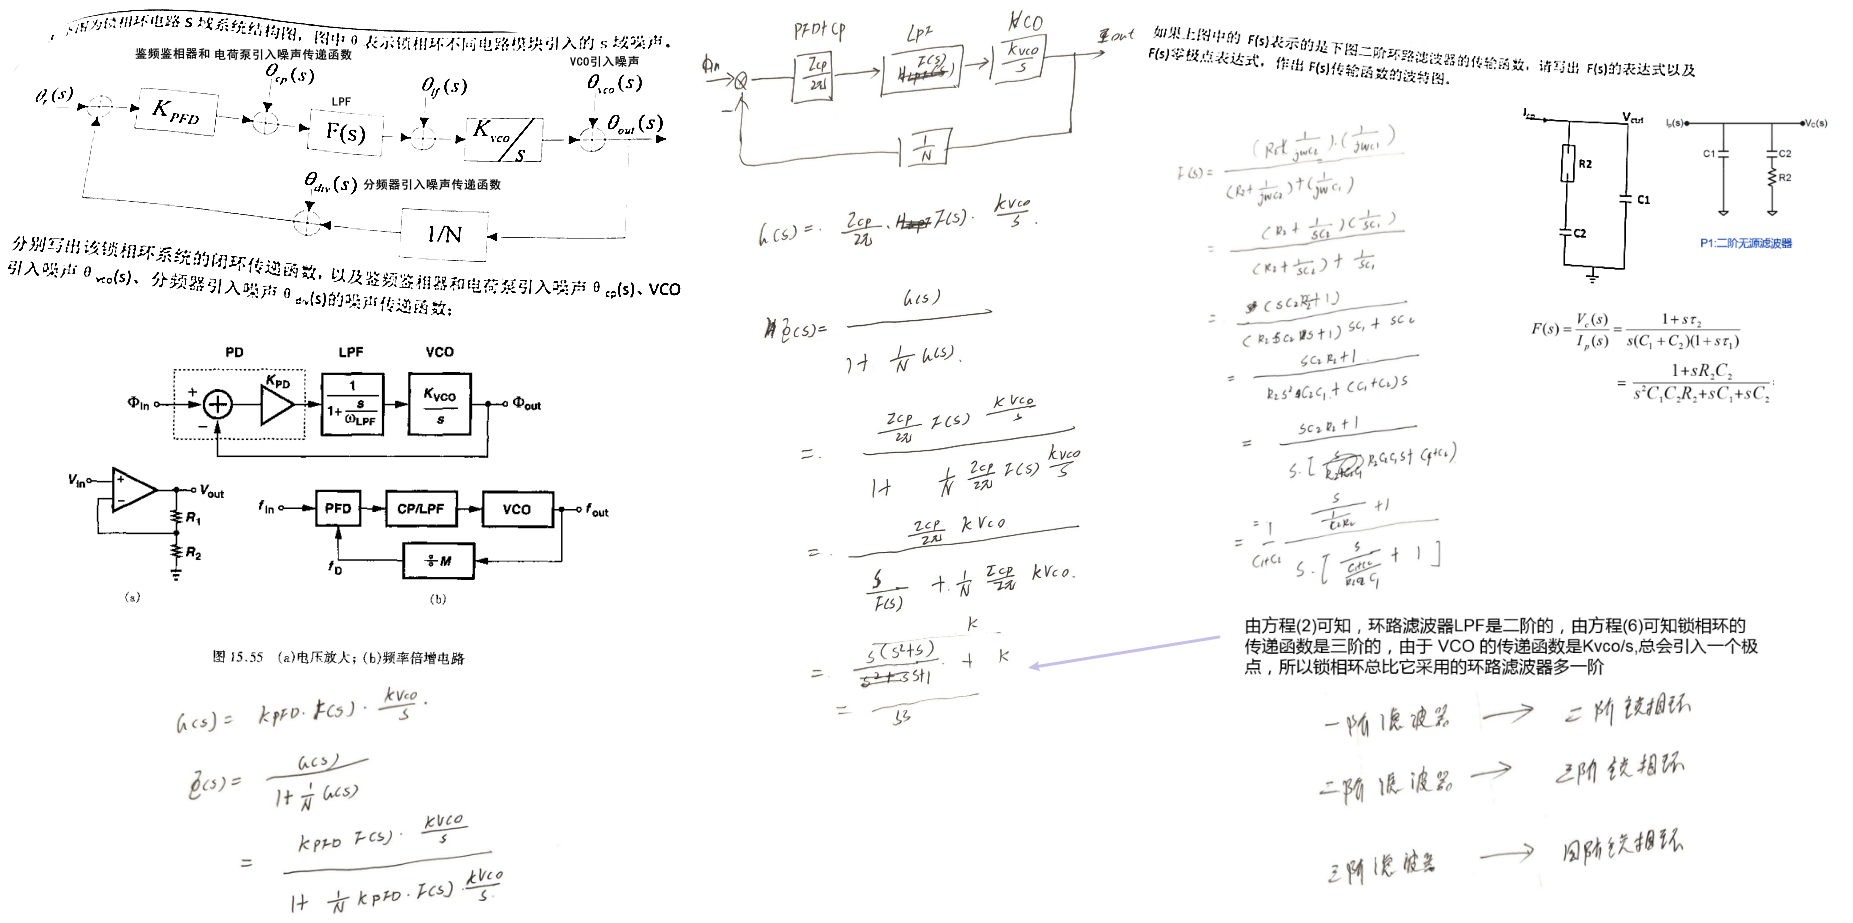 图为锁相环电路 S 域系统结构图，图中 θ 表示锁相环不同电路模块引入的 s 域噪声。
鉴频鉴相器和 电荷泵引入噪声传递函数
VCO引入噪声
θcp(s)
θlf(s)
θvco(s)
θr(s)
KPFD
LPF
F(s)
Kvco/s
θout(s)
θdiv(s) 分频器引入噪声传递函数
1/N
分别写出该锁相环系统的闭环传递函数，以及鉴频鉴相器和电荷泵引入噪声 θcp(s)、VCO
引入噪声 θvco(s)、分频器引入噪声 θdiv(s)的噪声传递函数；
PD
LPF
VCO
Φin
+
−
KPD
1/(1+s/ωLPF)
KVCO/s
Φout
Vin
+
−
Vout
R1
R2
fin
PFD
CP/LPF
VCO
fout
fD
÷M
(a)
(b)
图 15.55 (a)电压放大；(b)频率倍增电路
G(s) = KPFD · F(s) · Kvco/s.
Φ(s) = G(s)/(1+ 1/N G(s))
= (KPFD F(s) · Kvco/s)/(1+ 1/N KPFD · F(s) · Kvco/s)
PFD+CP
LPF
VCO
Φin
Icp/2π
F(s)
Kvco/s
Φout
−
1/N
G(s) = Icp/2π · F(s) · Kvco/s.
Φ(s) = G(s)/(1+ 1/N G(s))
= (Icp/2π F(s) Kvco/s)/(1+ 1/N Icp/2π F(s) Kvco/s)
= (Icp/2π Kvco)/(s/F(s) + 1/N Icp/2π Kvco)
= K/(s(s²+s)/(s+1) + K)
=
如果上图中的 F(s)表示的是下图二阶环路滤波器的传输函数，请写出 F(s)的表达式以及
F(s)零极点表达式，作出 F(s)传输函数的波特图。
Icp
Vctrl
R2
C1
C2
Ip(s)
Vc(s)
C1
C2
R2
P1:二阶无源滤波器
F(s)= (R2+ 1/jwC2)·(1/jwC1)/((R2+ 1/jwC2)+(1/jwC1))
= (R2 + 1/sC2)(1/sC1)/((R2+ 1/sC2) + 1/sC1)
= (sC2R2+1)/((R2sC2+1) sC1 + sC2)
= (sC2R2+1)/(R2s²C2C1 + (C1+C2)s)
= (sC2R2+1)/(s·[R2C2C1s+(C1+C2)])
= 1/(C1+C2) (s/(1/C2R2) +1)/(s·[s/((C1+C2)/R2C2C1) + 1])
F(s) = Vc(s)/Ip(s) = (1+sτ2)/(s(C1+C2)(1+sτ1))
= (1+sR2C2)/(s²C1C2R2+sC1+sC2)
由方程(2)可知，环路滤波器LPF是二阶的，由方程(6)可知锁相环的
传递函数是三阶的，由于 VCO 的传递函数是Kvco/s,总会引入一个极
点，所以锁相环总比它采用的环路滤波器多一阶
一阶滤波器 → 二阶锁相环
二阶滤波器 → 三阶锁相环
三阶滤波器 → 四阶锁相环